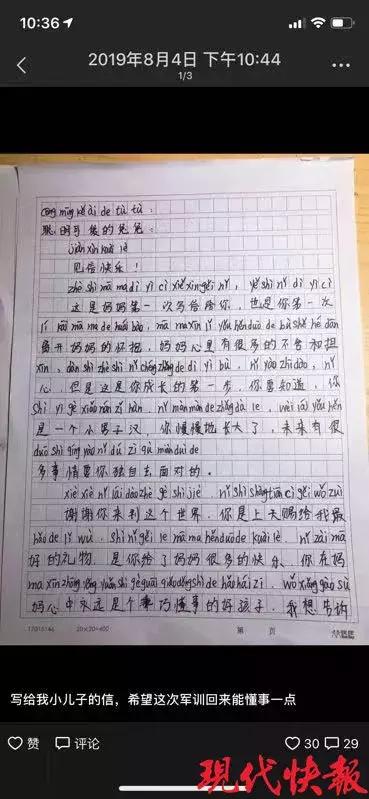 10:36
2019年8月4日 下午10:44
1/3
cōng míng kě ài de tù tù:
聪明可爱的兔兔:
jiàn xìn kuài lè
见信快乐!
zhè shì mā ma dì yī cì xiě xìn gěi nǐ, yě shì nǐ dì yī cì
这是妈妈第一次写信给你,也是你第一次
lí kāi mā ma de huái bào, mā ma xīn lǐ yǒu hěn duō de bù shě hé dān
离开妈妈的怀抱,妈妈心里有很多的不舍和担
xīn, dàn shì zhè shì nǐ chéng zhǎng de dì yī bù, nǐ yào zhī dào, nǐ
心,但是这是你成长的第一步,你要知道,你
shì yī gè xiǎo nán zǐ hàn, nǐ màn màn de zhǎng dà le, wèi lái yǒu hěn
是一个小男子汉,你慢慢地长大了,未来有很
duō shì qíng yào nǐ dú zì qù miàn duì de
多事情要你独自去面对的。
xiè xiè nǐ lái dào zhè gè shì jiè, nǐ shì shàng tiān cì gěi wǒ zuì
谢谢你来到这个世界,你是上天赐给我最
hǎo de lǐ wù, shì nǐ gěi le mā ma hěn duō de kuài lè, nǐ zài mā
好的礼物,是你给了妈妈很多的快乐,你在妈
ma xīn zhōng yǒng yuǎn shì gè guāi qiǎo dǒng shì de hǎo hái zi, wǒ xiǎng gào sù
妈心中永远是个乖巧懂事的好孩子,我想告诉
20×20=400 第 页
写给我小儿子的信，希望这次军训回来能懂事一点
赞 评论 30 29
现代快報